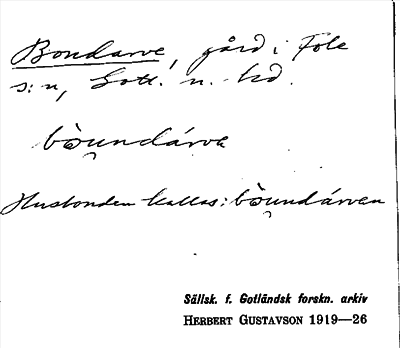 Bondarve, gård i Fole
s:n, Gotl. n. hd.
bòu̯ndárva
Husbonden kallas: bòu̯ndárven
Sällsk. f. Gotländsk forskn. arkiv
HERBERT GUSTAVSON 1919—26